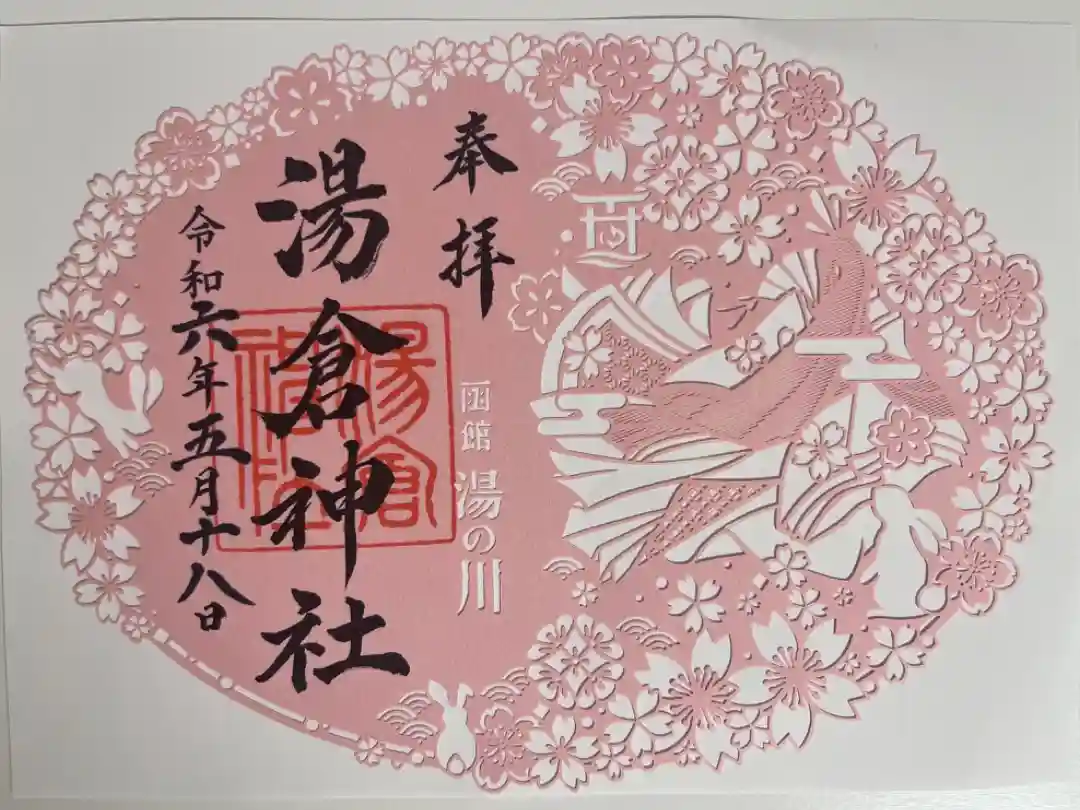 奉拝
函館 湯の川
湯倉神社
湯倉
令和六年五月十八日